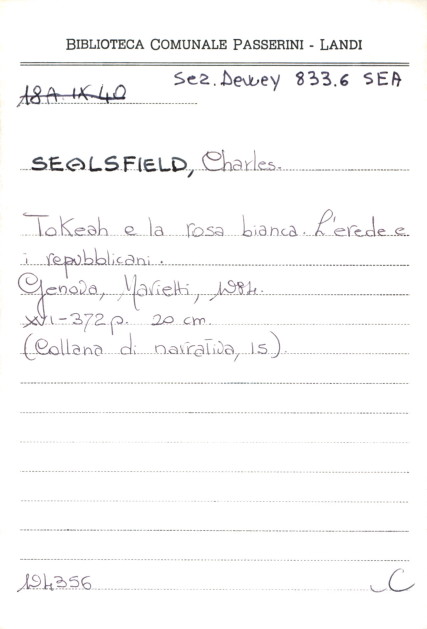 BIBLIOTECA COMUNALE PASSERINI - LANDI
Sez. Dewey 833.6 SEA
18A IX 40
SEALSFIELD, Charles.
Tokeah e la rosa bianca. L'erede e
i repubblicani.
Genova, Marietti, 1984.
XVI-372 p. 20 cm.
(Collana di narrativa, 15).
194356
C